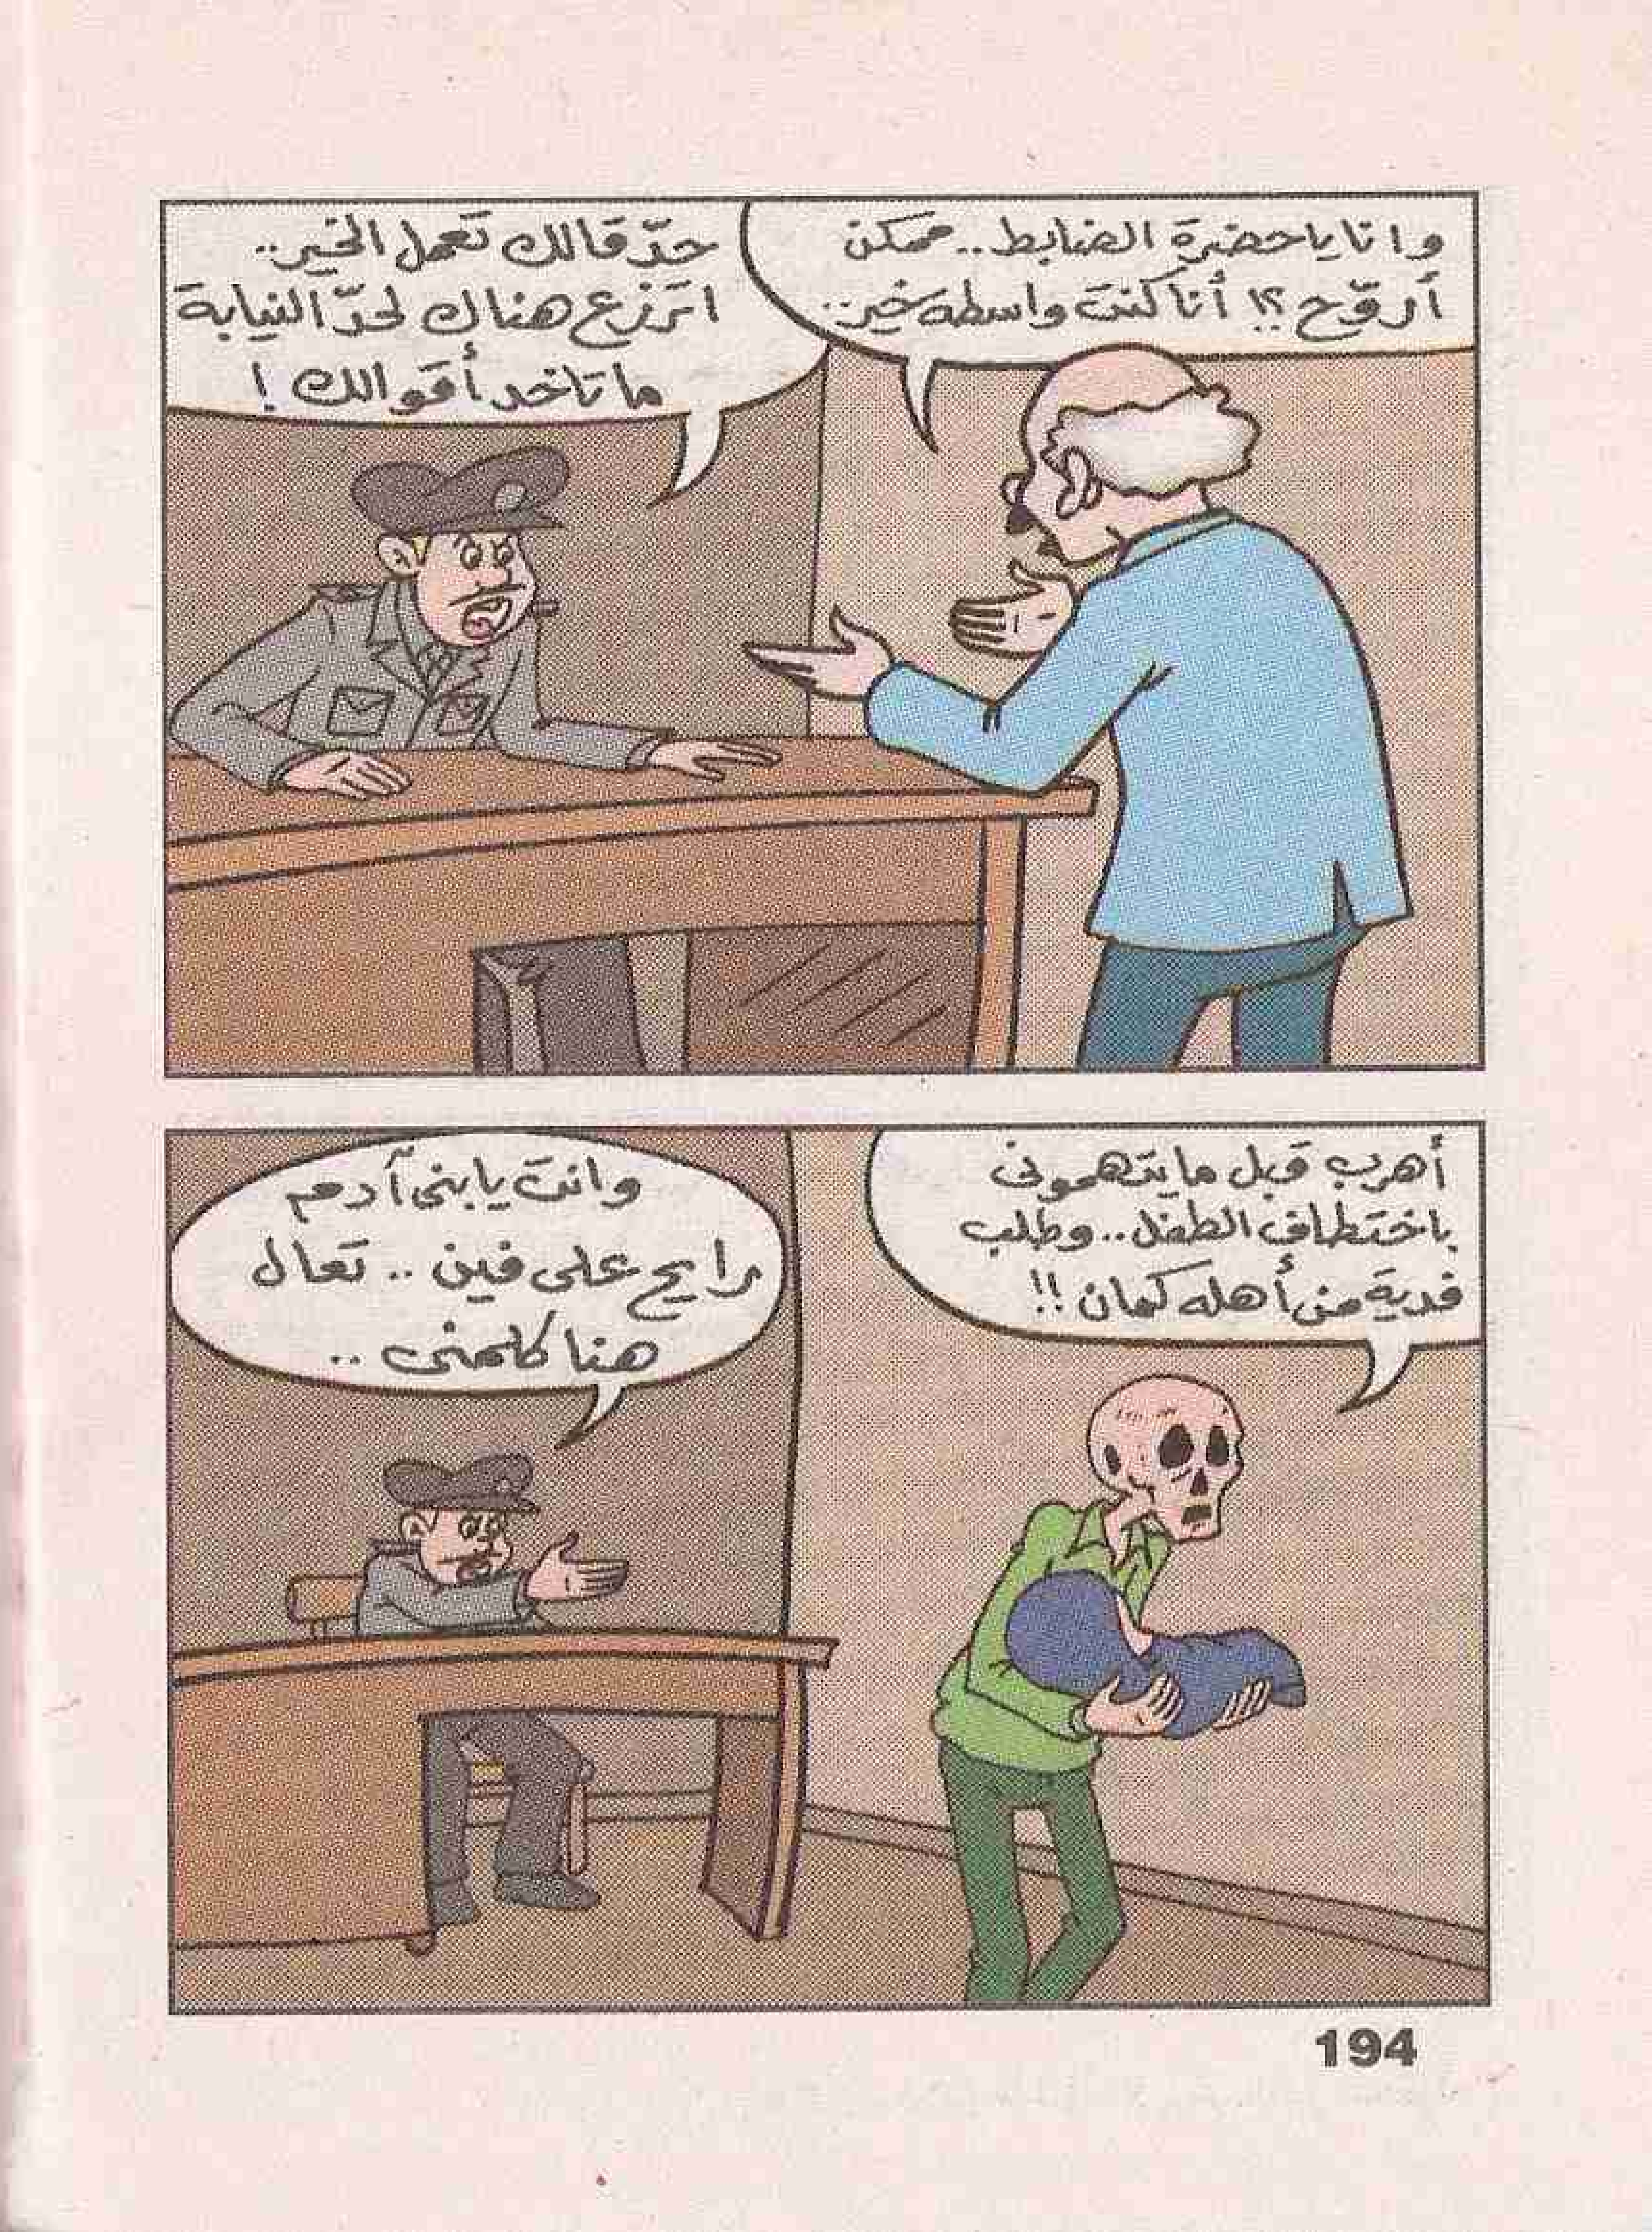 وانا يا حضرة الضابط.. ممكن
أروّح ؟! أنا كنت واسطة خير..
حدّ قالك تعمل الخير..
اترزع هناك لحدّ النيابة
ما تاخد أقوالك !
أهرب قبل ما يتهمونى
باختطاف الطفل.. وطلب
فدية من أهله كمان !!
وانت يا بنى آدم
رايح على فين .. تعال
هنا كلمنى ..
194